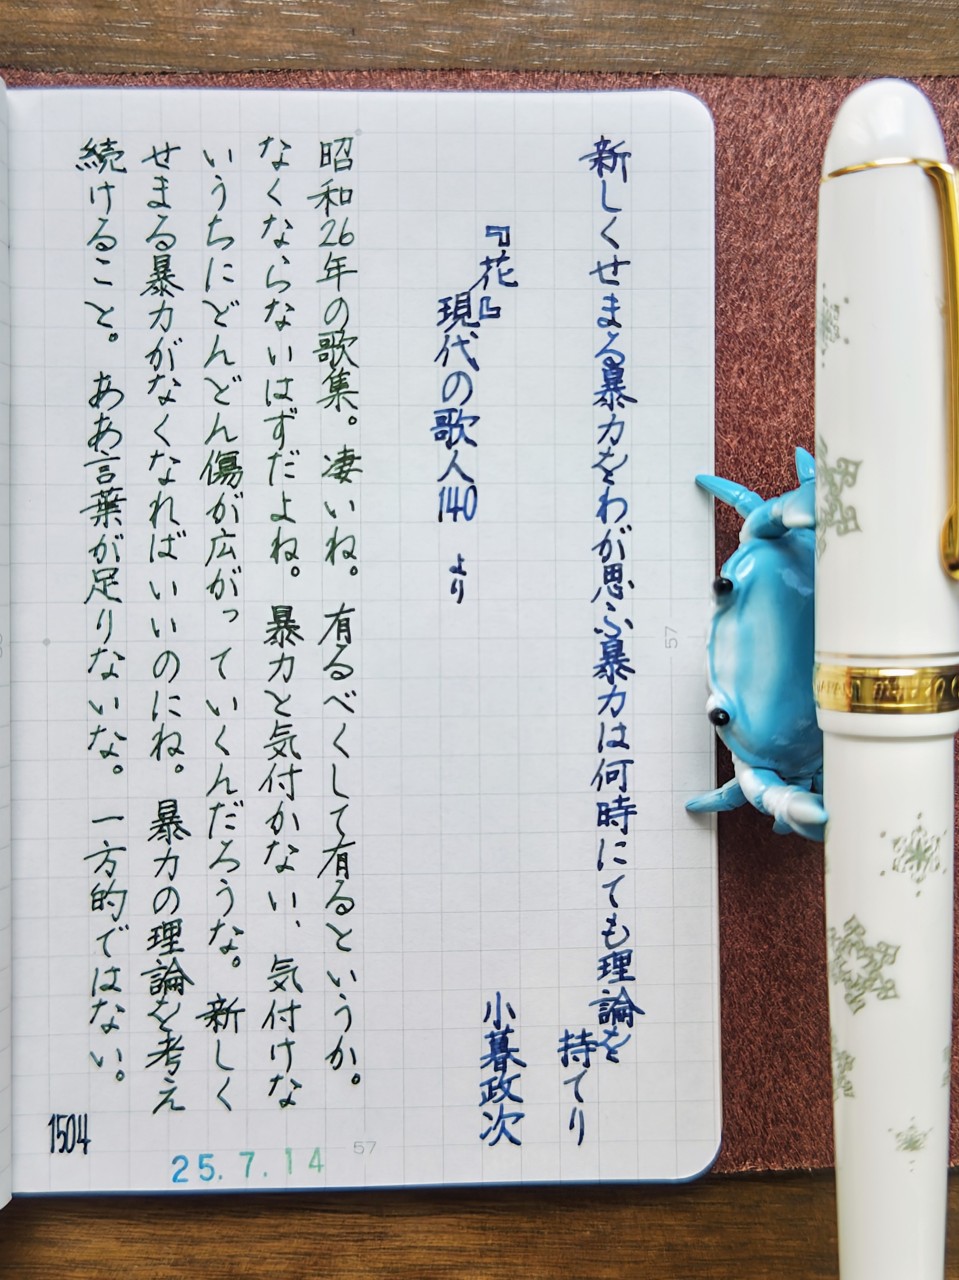 新しくせまる暴力をわが思ふ暴力は何時にても理論を
持てり
小暮政次
『花』
現代の歌人140 より
昭和26年の歌集。凄いね。有るべくして有るというか。
なくならないはずだよね。暴力と気付かない、気付けな
いうちにどんどん傷が広がっていくんだろうな。新しく
せまる暴力がなくなればいいのにね。暴力の理論を考え
続けること。ああ言葉が足りないな。一方的ではない。
1504
25.7.14
57
57